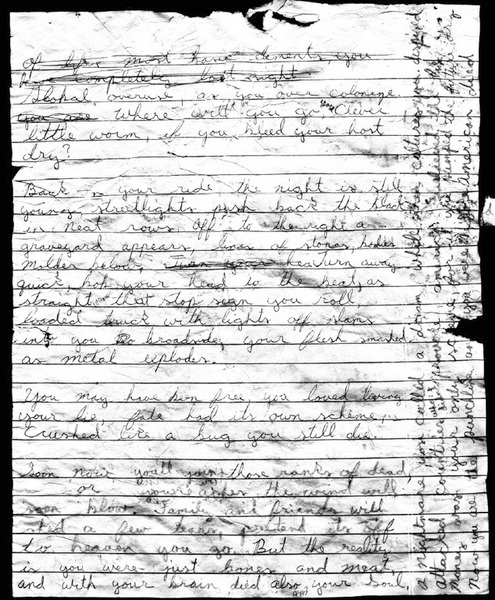 of life most have dements, you
have completely lost sight
Global overuse, as you over colonize
you are where will you go you Clever
little worm, if you bleed your host
dry?
Back in your ride the night is still
young, streetlights push back the black
in neat rows. Off to the right a
graveyard appears, lines of stones, bodies
molder below. Turn your head turn away
quick, bob your head to the beat, as
straight that stop sign you roll,
loaded truck with lights off slams
into you broadside, your flesh smashed
as metal explodes.
You may have been free, you loved living
your lie, fate had its own scheme
Crushed like a bug you still die.
Soon now you'll join those ranks of dead,
or your ashes the wind will
soon blow. Family and friends will
shed a few tears, pretend its off
to heaven you go. But the reality
is you were just bones and meat,
and with your brain died also your soul.
a nightmare you called a dream, while other cultures you
attacked countries
money was your only
now you are the punchline, an American died